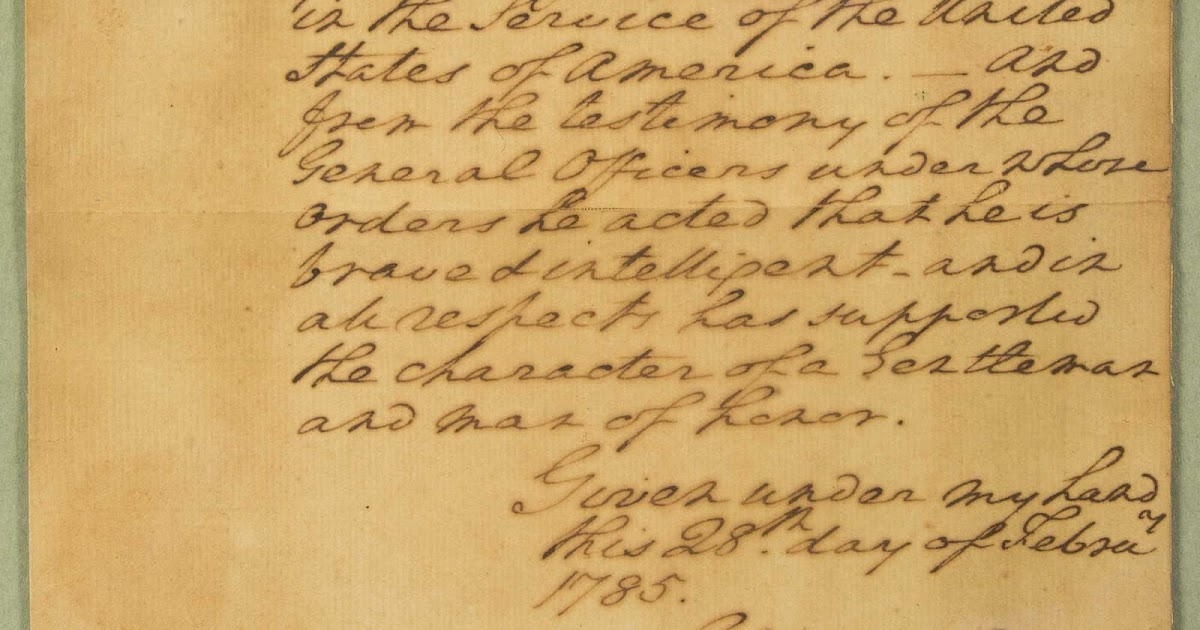 in the Service of the United
States of America. — And
from the testimony of the
General Officers under whose
orders he acted that he is
brave & intelligent - and in
all respects has supported
the character of a Gentleman
and man of honor.
Given under my hand
this 28th. day of Februay
1785.